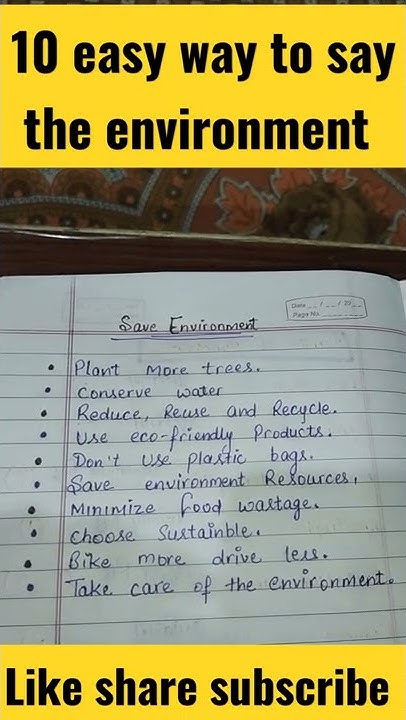 10 easy way to say
the environment
Date __/__/20__
Page No.
Save Environment
• Plant more trees.
• Conserve water
• Reduce, Reuse and Recycle.
• Use eco-friendly Products.
• Don't Use plastic bags.
• Save environment Resources,
• Minimize food wastage.
• Choose Sustainble.
• Bike more drive less.
• Take care of the environment.
Like share subscribe